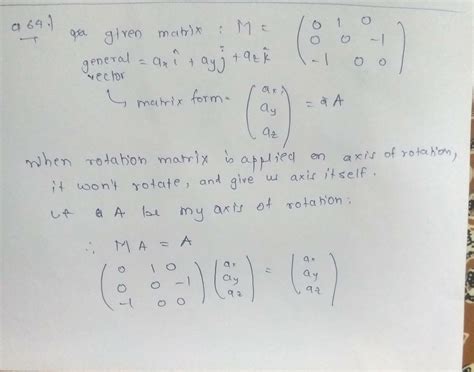 Q 64.)
given matrix : M = ( 0 1 0
0 0 -1
-1 0 0 )
general vector = aₓ î + aᵧ ĵ + a_z k̂
↳ matrix form = ( aₓ
aᵧ
a_z ) = A
When rotation matrix is applied on axis of rotation,
it won't rotate, and give us axis itself.
let A be my axis of rotation:
∴ M A = A
( 0 1 0
0 0 -1
-1 0 0 ) ( aₓ
aᵧ
a_z ) = ( aₓ
aᵧ
a_z )